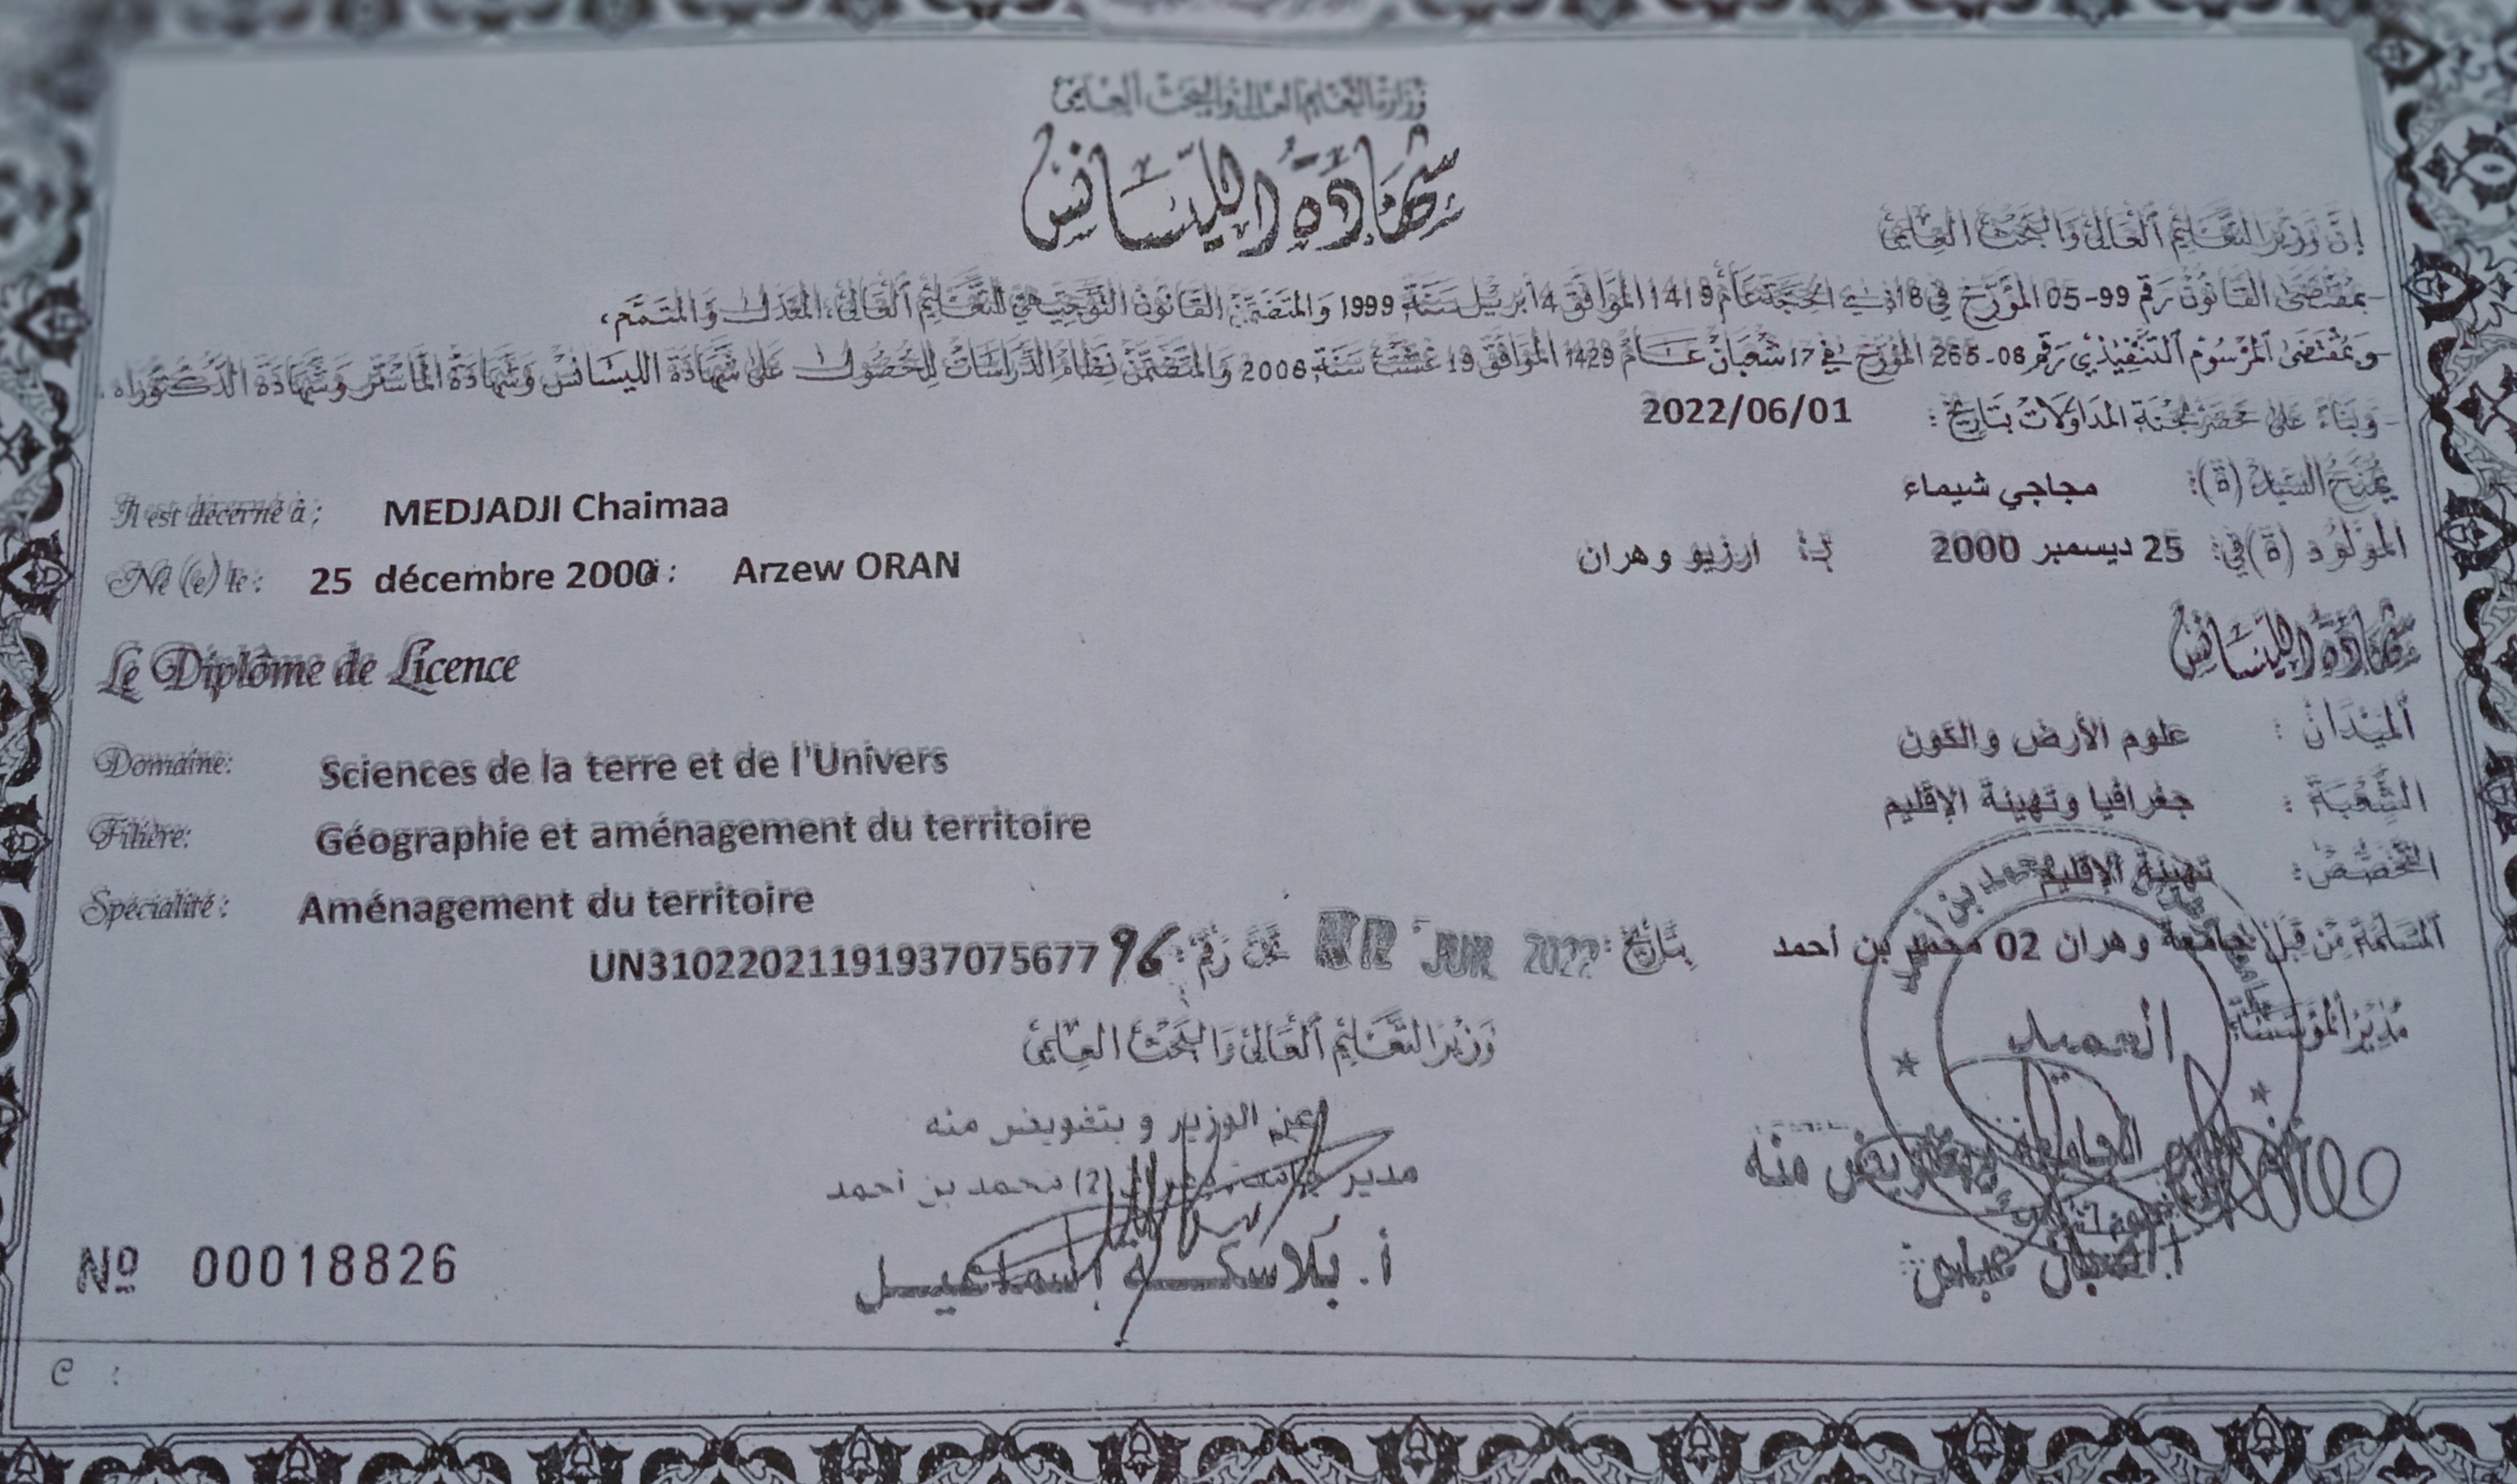 وزارة التعليم العالي والبحث العلمي
شهادة الليسانس
إن وزير التعليم العالي والبحث العلمي
- بمقتضى القانون رقم 99-05 المؤرخ في 18 ذي الحجة عام 1419 الموافق 4 أبريل سنة 1999 والمتضمن القانون التوجيهي للتعليم العالي، المعدل والمتمم،
- وبمقتضى المرسوم التنفيذي رقم 08-265 المؤرخ في 17 شعبان عام 1429 الموافق 19 غشت سنة 2008 والمتضمن نظام الدراسات للحصول على شهادة الليسانس وشهادة الماستر وشهادة الدكتوراه.
- وبناء على محضر لجنة المداولات بتاريخ : 2022/06/01
يمنح السيد (ة): مجاجي شيماء
Il est décerné à : MEDJADJI Chaimaa
المولود (ة) في: 25 ديسمبر 2000 بـ: ارزيو وهران
Né (e) le : 25 décembre 2000 à : Arzew ORAN
شهادة الليسانس
Le Diplôme de Licence
الميدان : علوم الأرض والكون
Domaine: Sciences de la terre et de l'Univers
الشعبة : جغرافيا وتهيئة الإقليم
Filière: Géographie et aménagement du territoire
التخصص: تهيئة الإقليم
Spécialité : Aménagement du territoire
المسلمة من قبل جامعة وهران 02 محمد بن أحمد بتاريخ: JUIN 2022 تحت رقم: 96 UN31022021191937075677
مدير المؤسسة
وزير التعليم العالي والبحث العلمي
العميد
عن الوزير و بتفويض منه
مدير جامعة وهران (2) محمد بن أحمد
منه
أ. بلاسكة إسماعيل
عباس
Nº 00018826